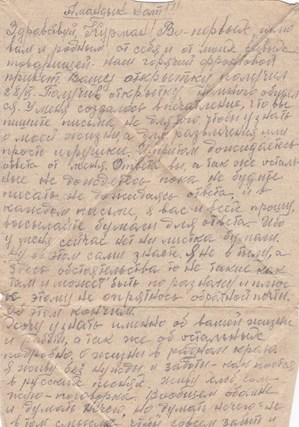 Амандык Сат!!!
Здравствуй, Нурлан! Во-первых, шлю
вам и родным от себя и от моих
товарищей наш горячий фронтовой
привет. Вашу открытку получил
28/II. Получив открытку немного
ся. У меня создалось впечатление, что вы
пишите письма не для того чтобы узнать
о моей жизни, а для развлечения или
просто игрушки. При том дожидаетесь
ответа от меня. Ответа вы а так же осталь
ные не дождетесь пока не будете
писать не дожидаясь ответа, и в
каждом письме, я вас и всех прошу,
высылайте бумаги для ответа. Ибо
у меня сейчас нет ни листка бумаги.
Ну об этом сами знаете. Я не в тылу, а
здесь обстоятельства то не такие как
там и может быть по разному и плюс
к этому не опрятность обратной почты.
Об этом кончим.
Хочу узнать именно об вашей жизни
и, а так же об остальных
подробно. О жизни в родном краю
я живу без нужды и заботы как поется
в русских песнях. Живу
Вообщем обо мне
и думать нечего, но думать нечего не
в том смысле чтобы совсем забыть и